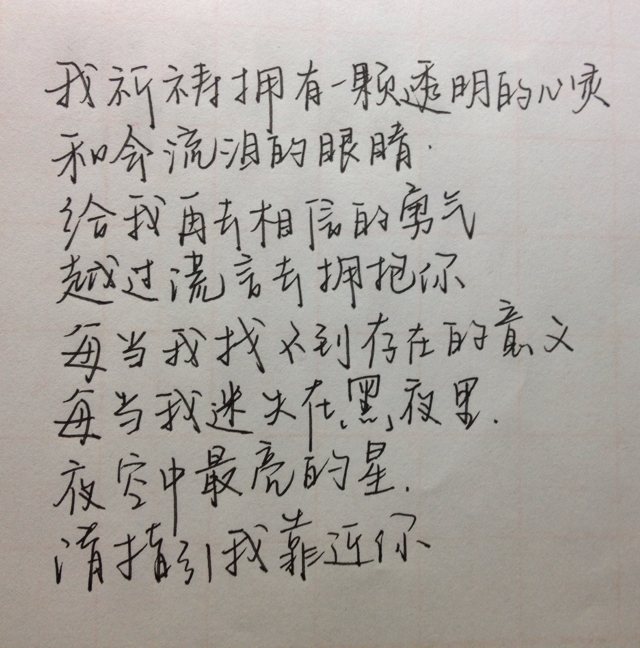 我祈祷拥有一颗透明的心灵
和会流泪的眼睛.
给我再去相信的勇气
越过谎言去拥抱你
每当我找不到存在的意义
每当我迷失在黑夜里.
夜空中最亮的星.
请指引我靠近你